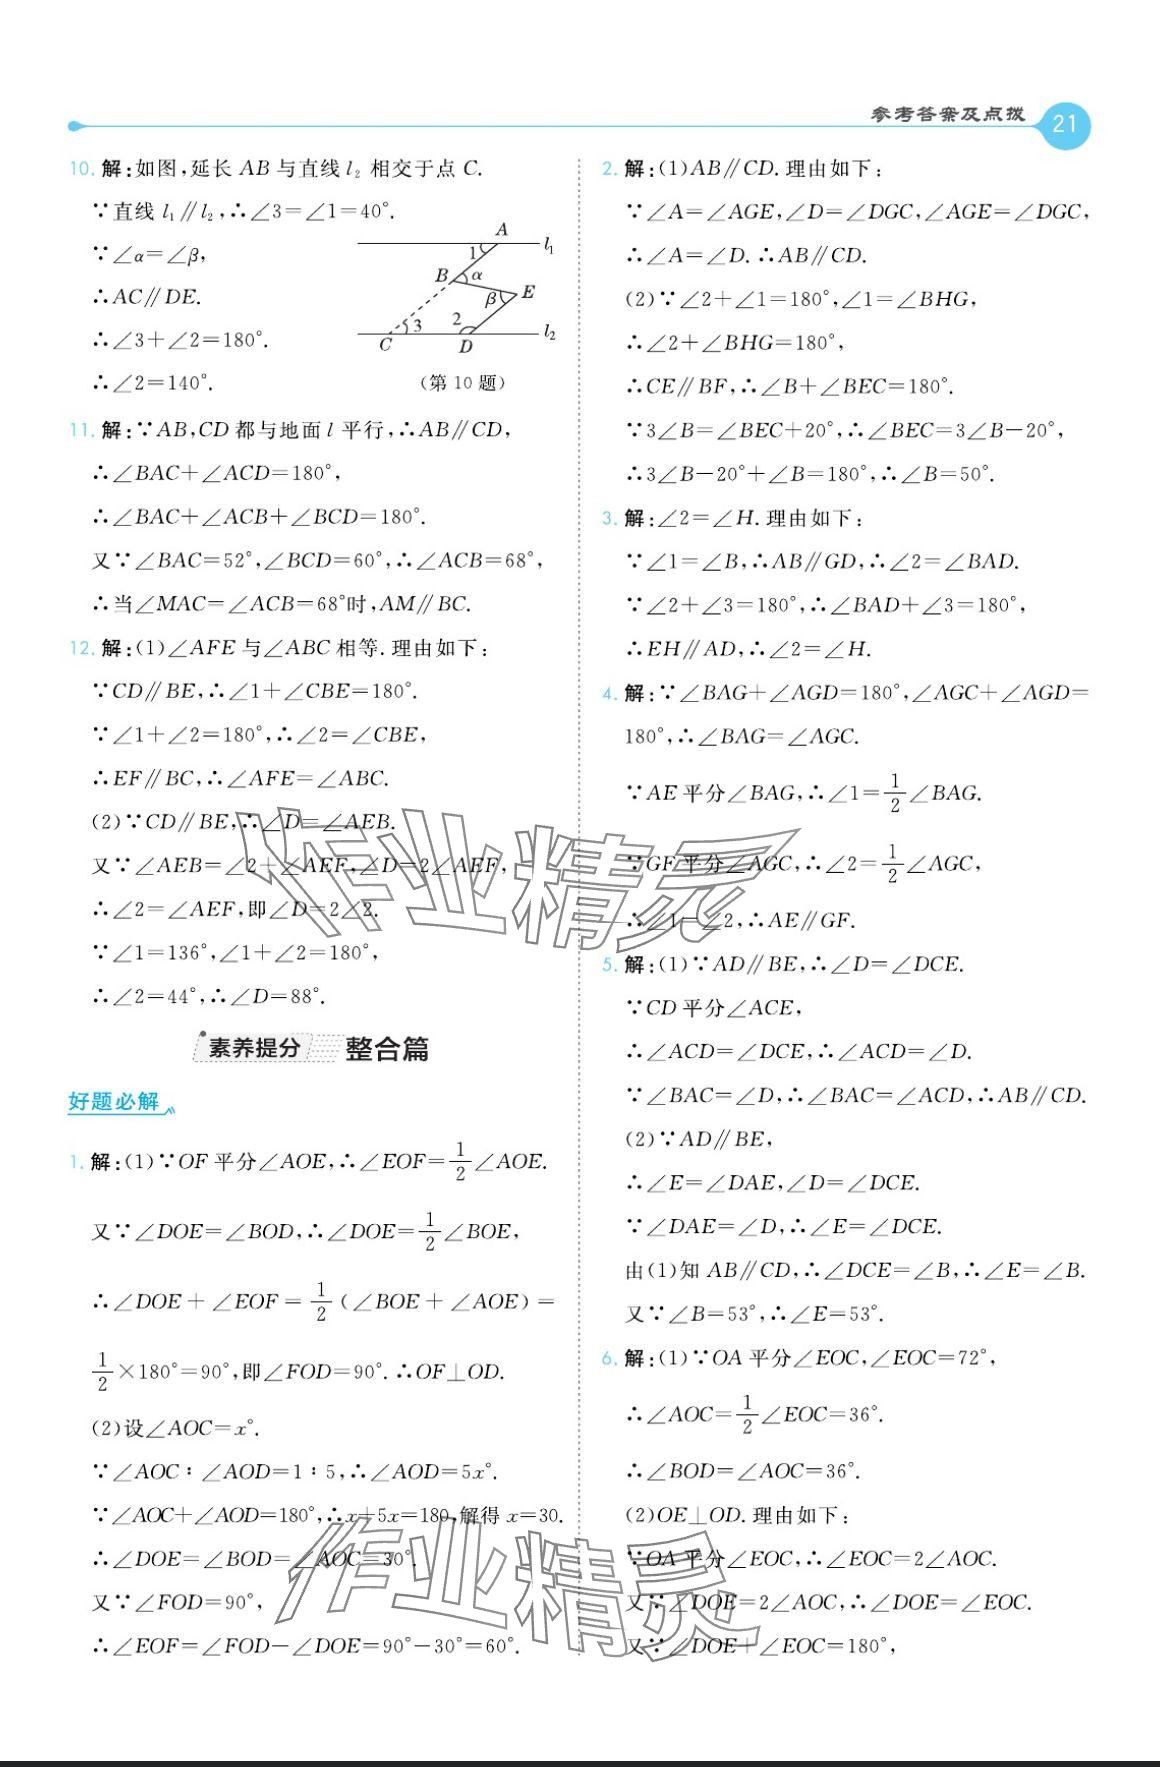 参考答案及点拨
21
10. 解:如图,延长 AB 与直线 l₂ 相交于点 C.
∵直线 l₁∥l₂,∴∠3=∠1=40°.
∵∠α=∠β,
∴AC∥DE.
∴∠3+∠2=180°.
∴∠2=140°.
A
1
l₁
B
α
β
E
3
2
l₂
C
D
(第 10 题)
11. 解:∵AB,CD 都与地面 l 平行,∴AB∥CD,
∴∠BAC+∠ACD=180°,
∴∠BAC+∠ACB+∠BCD=180°.
又∵∠BAC=52°,∠BCD=60°,∴∠ACB=68°,
∴当∠MAC=∠ACB=68°时,AM∥BC.
12. 解:(1)∠AFE 与∠ABC 相等.理由如下:
∵CD∥BE,∴∠1+∠CBE=180°.
∵∠1+∠2=180°,∴∠2=∠CBE,
∴EF∥BC,∴∠AFE=∠ABC.
(2)∵CD∥BE,∴∠D=∠AEB.
又∵∠AEB=∠2+∠AEF,∠D=2∠AEF,
∴∠2=∠AEF,即∠D=2∠2.
∵∠1=136°,∠1+∠2=180°,
∴∠2=44°,∴∠D=88°.
素养提分 整合篇
好题必解
1. 解:(1)∵OF 平分∠AOE,∴∠EOF=1/2∠AOE.
又∵∠DOE=∠BOD,∴∠DOE=1/2∠BOE,
∴∠DOE+∠EOF=1/2(∠BOE+∠AOE)=
1/2×180°=90°,即∠FOD=90°.∴OF⊥OD.
(2)设∠AOC=x°.
∵∠AOC∶∠AOD=1∶5,∴∠AOD=5x°.
∵∠AOC+∠AOD=180°,∴x+5x=180,解得 x=30.
∴∠DOE=∠BOD=∠AOC=30°.
又∵∠FOD=90°,
∴∠EOF=∠FOD−∠DOE=90°−30°=60°.
2. 解:(1)AB∥CD.理由如下:
∵∠A=∠AGE,∠D=∠DGC,∠AGE=∠DGC,
∴∠A=∠D.∴AB∥CD.
(2)∵∠2+∠1=180°,∠1=∠BHG,
∴∠2+∠BHG=180°,
∴CE∥BF,∴∠B+∠BEC=180°.
∵3∠B=∠BEC+20°,∴∠BEC=3∠B−20°,
∴3∠B−20°+∠B=180°,∴∠B=50°.
3. 解:∠2=∠H.理由如下:
∵∠1=∠B,∴AB∥GD,∴∠2=∠BAD.
∵∠2+∠3=180°,∴∠BAD+∠3=180°,
∴EH∥AD,∴∠2=∠H.
4. 解:∵∠BAG+∠AGD=180°,∠AGC+∠AGD=
180°,∴∠BAG=∠AGC.
∵AE 平分∠BAG,∴∠1=1/2∠BAG.
∵GF 平分∠AGC,∴∠2=1/2∠AGC,
∴∠1=∠2,∴AE∥GF.
5. 解:(1)∵AD∥BE,∴∠D=∠DCE.
∵CD 平分∠ACE,
∴∠ACD=∠DCE,∴∠ACD=∠D.
∵∠BAC=∠D,∴∠BAC=∠ACD,∴AB∥CD.
(2)∵AD∥BE,
∴∠E=∠DAE,∠D=∠DCE.
∵∠DAE=∠D,∴∠E=∠DCE.
由(1)知 AB∥CD,∴∠DCE=∠B,∴∠E=∠B.
又∵∠B=53°,∴∠E=53°.
6. 解:(1)∵OA 平分∠EOC,∠EOC=72°,
∴∠AOC=1/2∠EOC=36°.
∴∠BOD=∠AOC=36°.
(2)OE⊥OD.理由如下:
∵OA 平分∠EOC,∴∠EOC=2∠AOC.
又∵∠DOE=2∠AOC,∴∠DOE=∠EOC.
又∵∠DOE+∠EOC=180°,
作业精灵
作业精灵